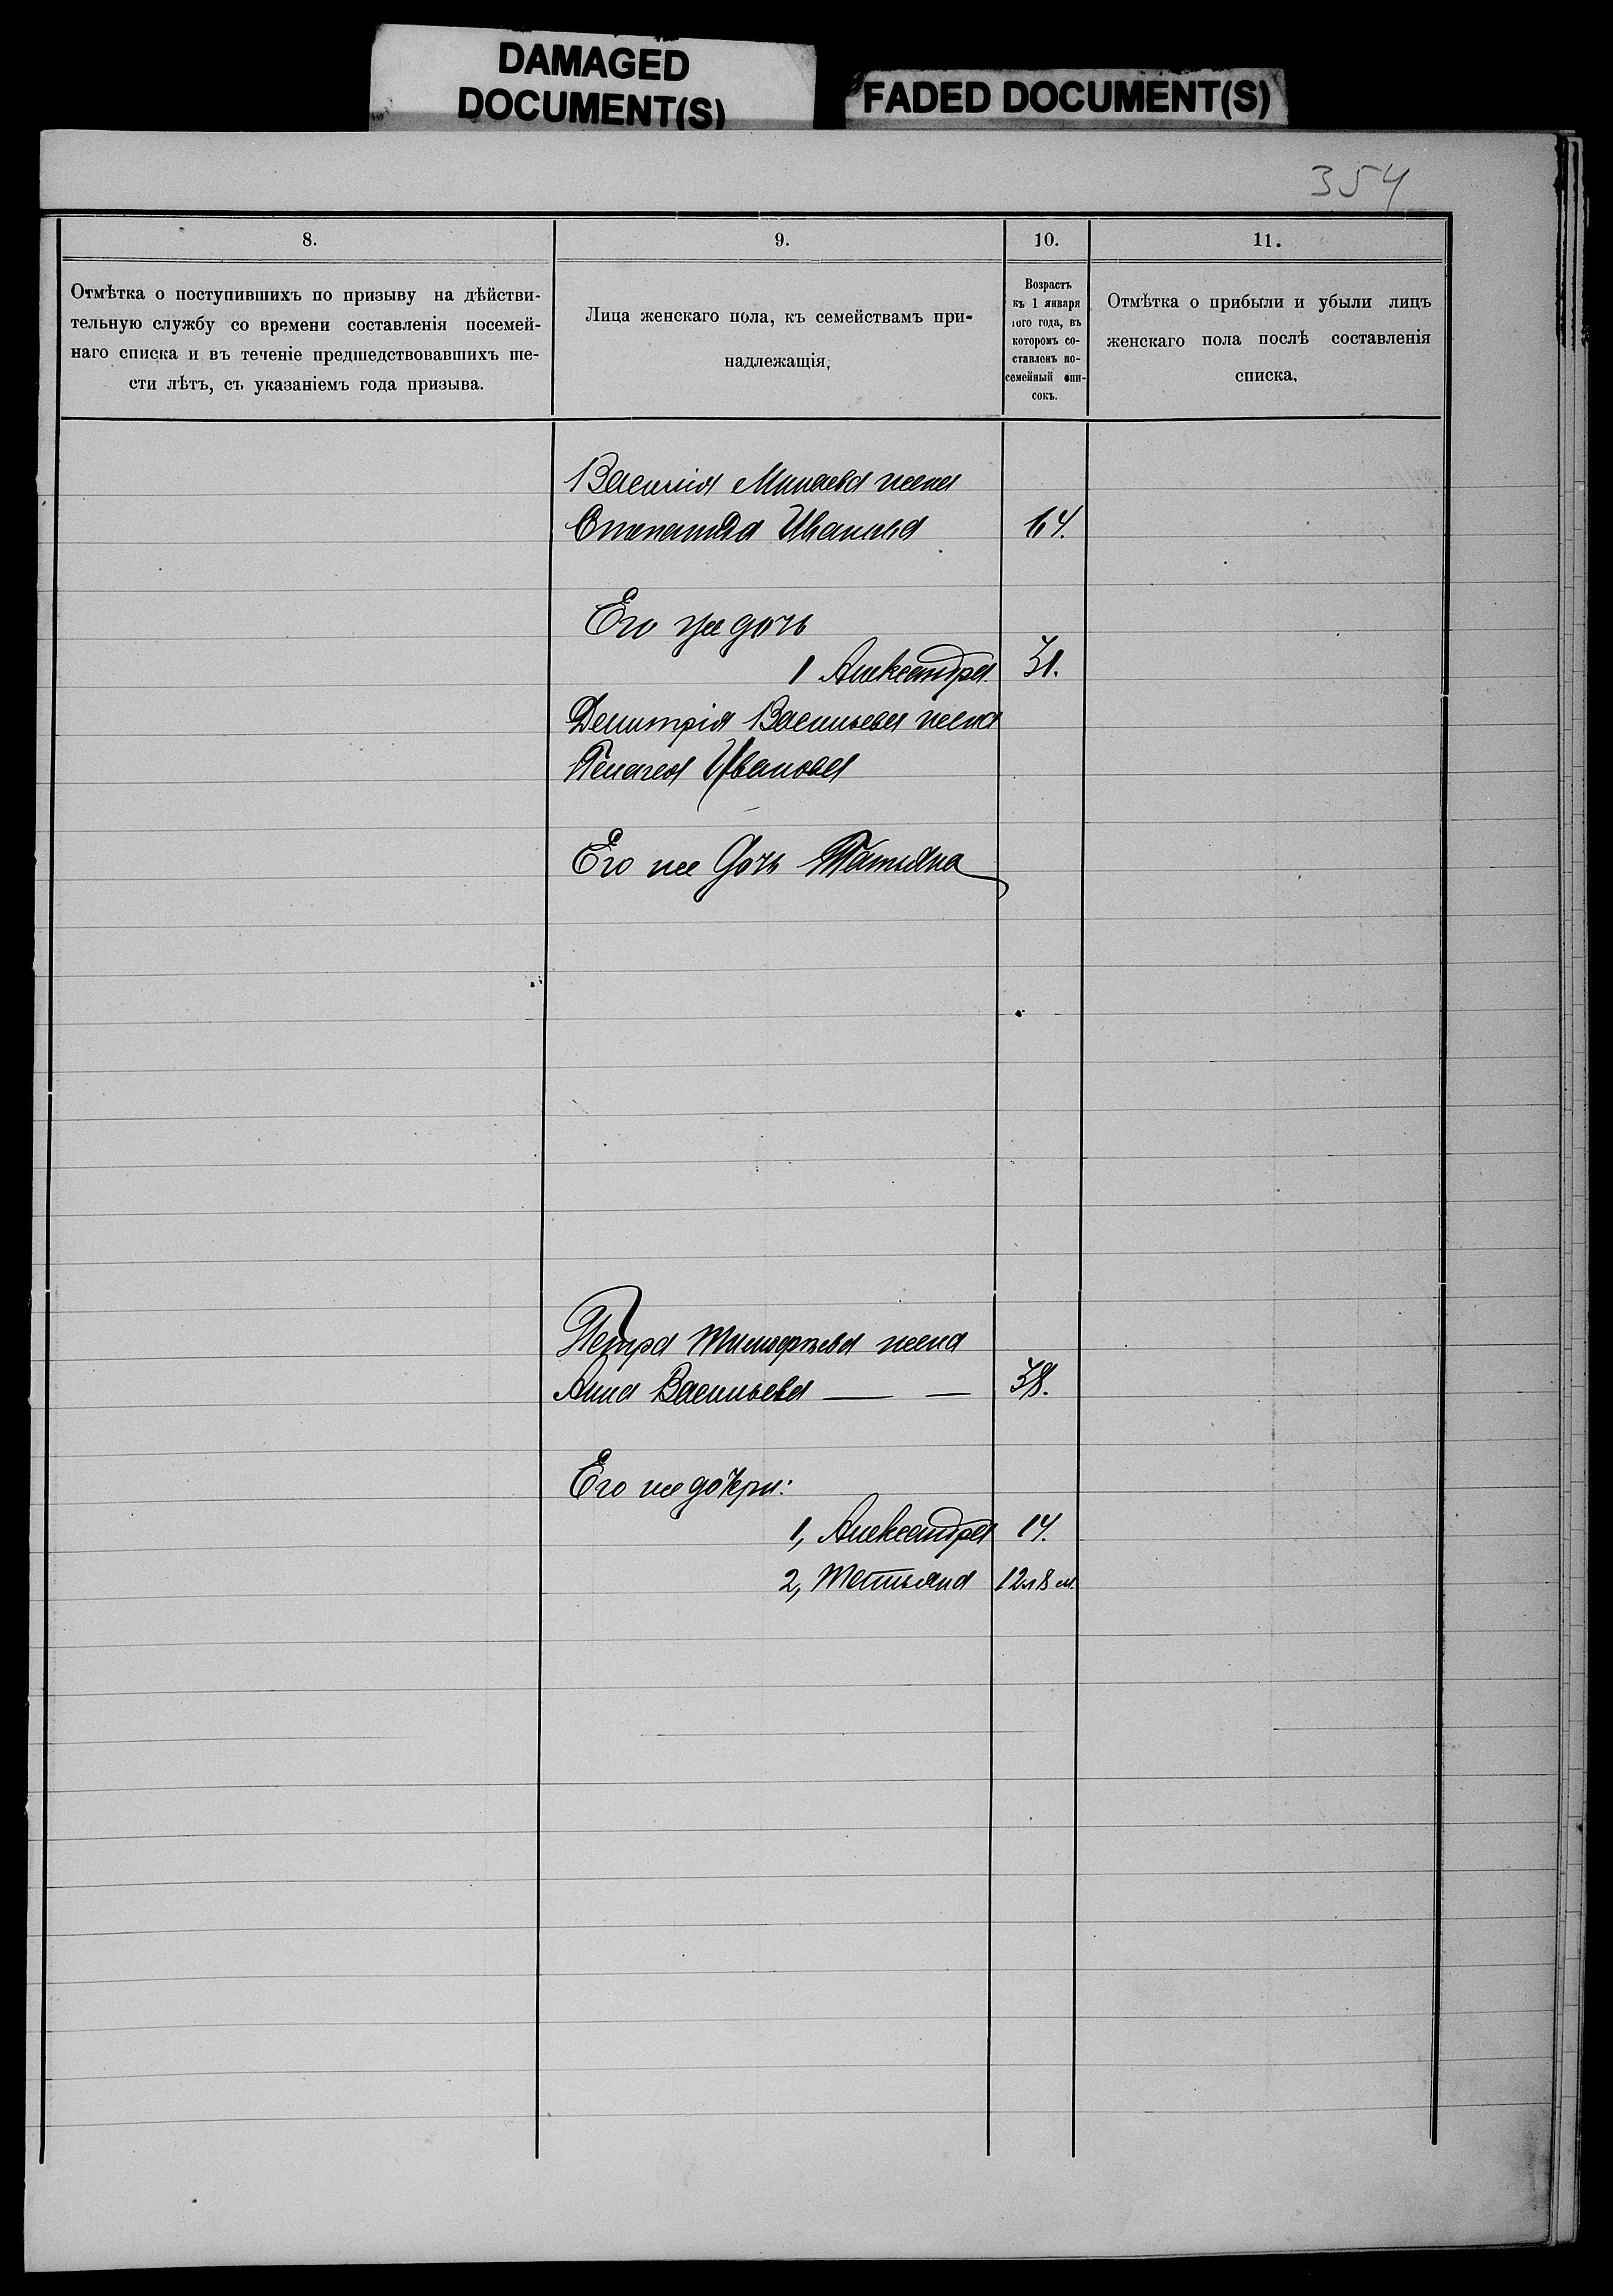 DAMAGED
DOCUMENT(S)
FADED DOCUMENT(S)
354
8.
Отмѣтка о поступившихъ по призыву на дѣйстви-
тельную службу со времени составленія посемей-
наго списка и въ теченіе предшедствовавшихъ ше-
сти лѣтъ, съ указаніемъ года призыва.
9.
Лица женскаго пола, къ семействамъ при-
надлежащія,
10.
Возрастъ
къ 1 января
того года, въ
которомъ со-
ставленъ по-
семейный спи-
сокъ.
11.
Отмѣтка о прибыли и убыли лицъ
женскаго пола послѣ составленія
списка,
Василія Минаева жена
Степанида Иванова 64.
Его же дочь
1 Александра 31.
Демитрія Васильева жена
Пелагея Иванова
Его же дочь Татьяна
Петра Тимофѣева жена
Анна Васильева — — 38.
Его же дочери:
1, Александра 14.
2, Татьяна 12 л 8 м.